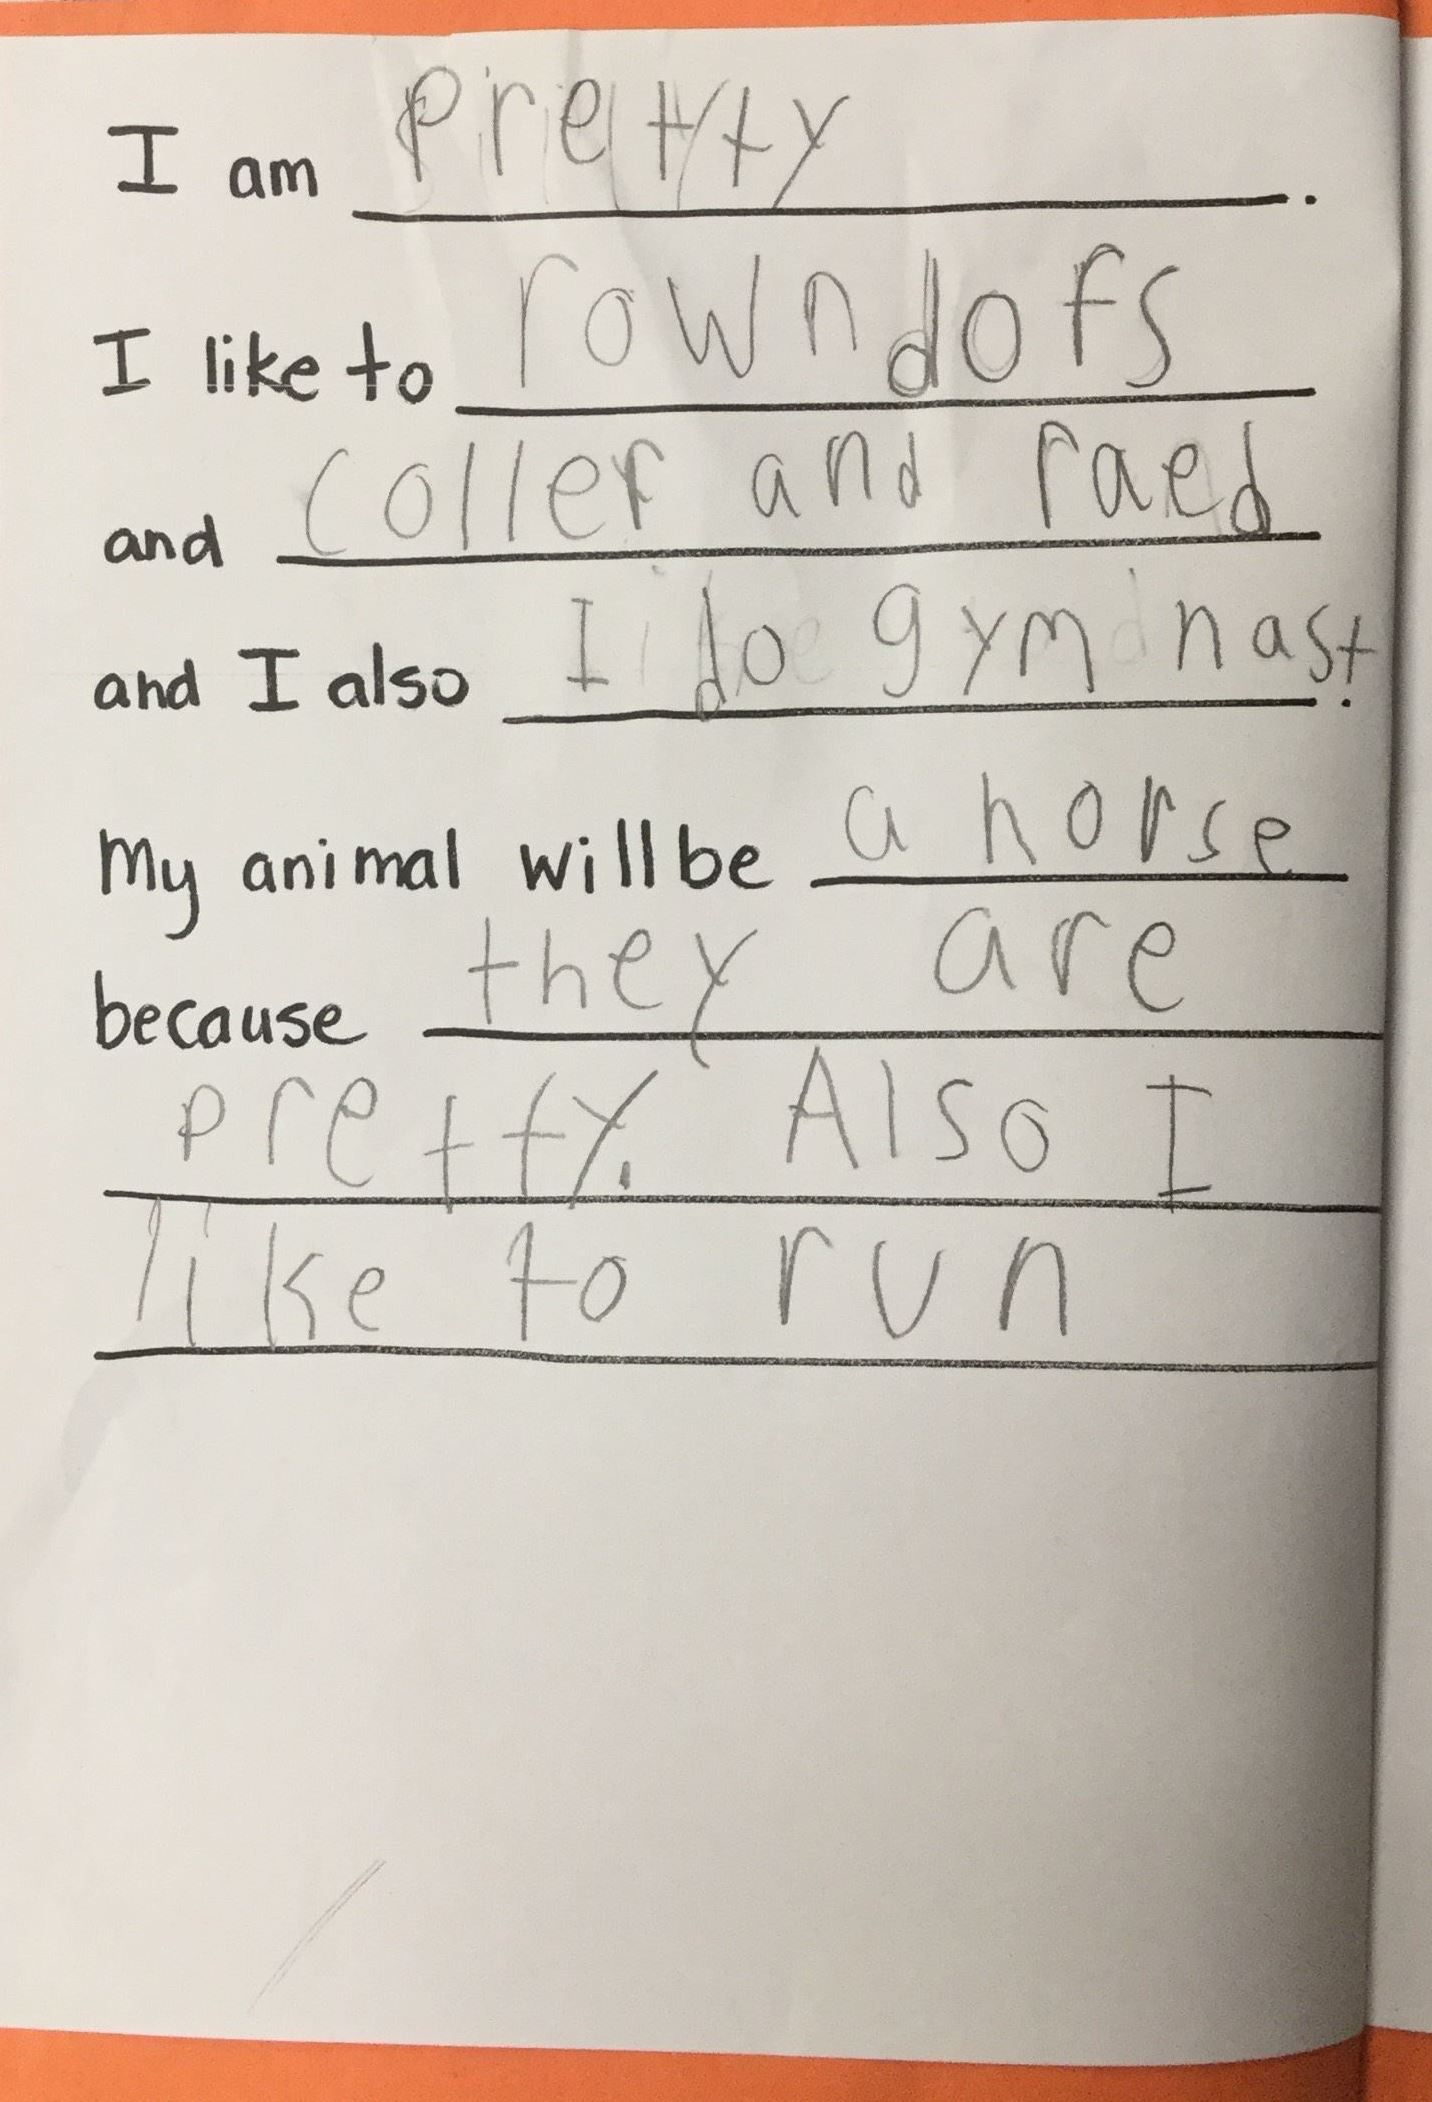 I am pretty.
I like to rowndofs
and coller and raed
and I also I do gymnast.
My animal will be a horse
because they are
pretty. Also I
like to run